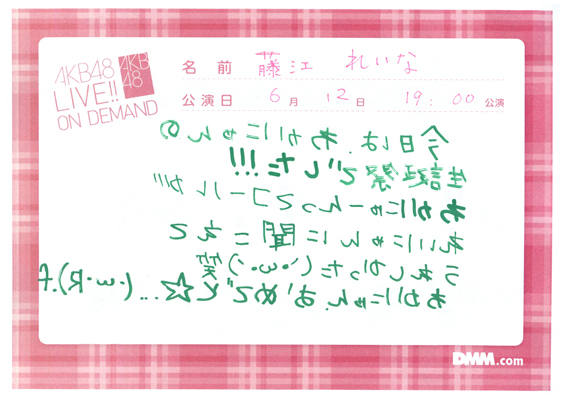 AKB48
LIVE!!
ON DEMAND
AKB
48
名前 藤江 れいな
公演日 6月 12日 19:00公演
今日は、わかにゃんの
生誕祭でした!!!
わかにゃーんってコールが
れいにゃんに聞こえて
うれしかった(・ω・)笑
わかにゃん、おめでと☆...(・ω・R)f.
DMM.com